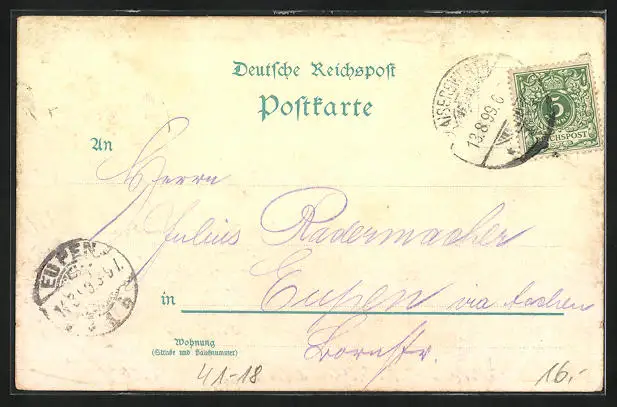 Deutsche Reichspost
Postkarte
13.8.99.6
5
REICHSPOST
An
Herrn
Julius Radermacher
EUPEN
in Eupen via Aachen
Wohnung
(Straße und Hausnummer)
41-18
16.-